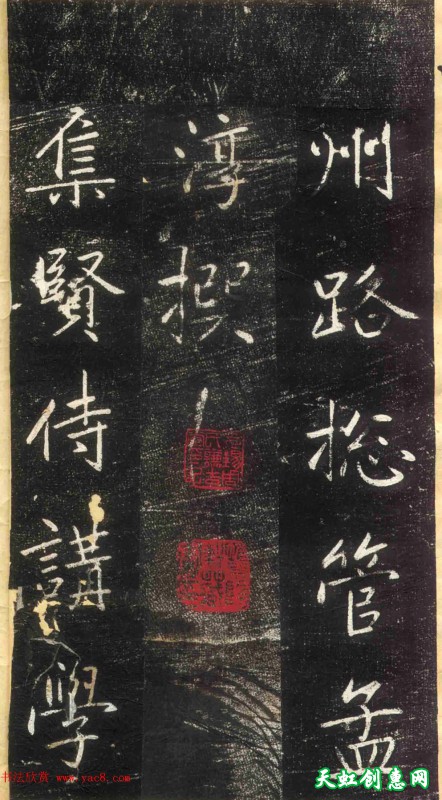 州路揔管孟
淳撰
集賢侍講學
书法欣赏 www.yac8.com
天虹创惠网